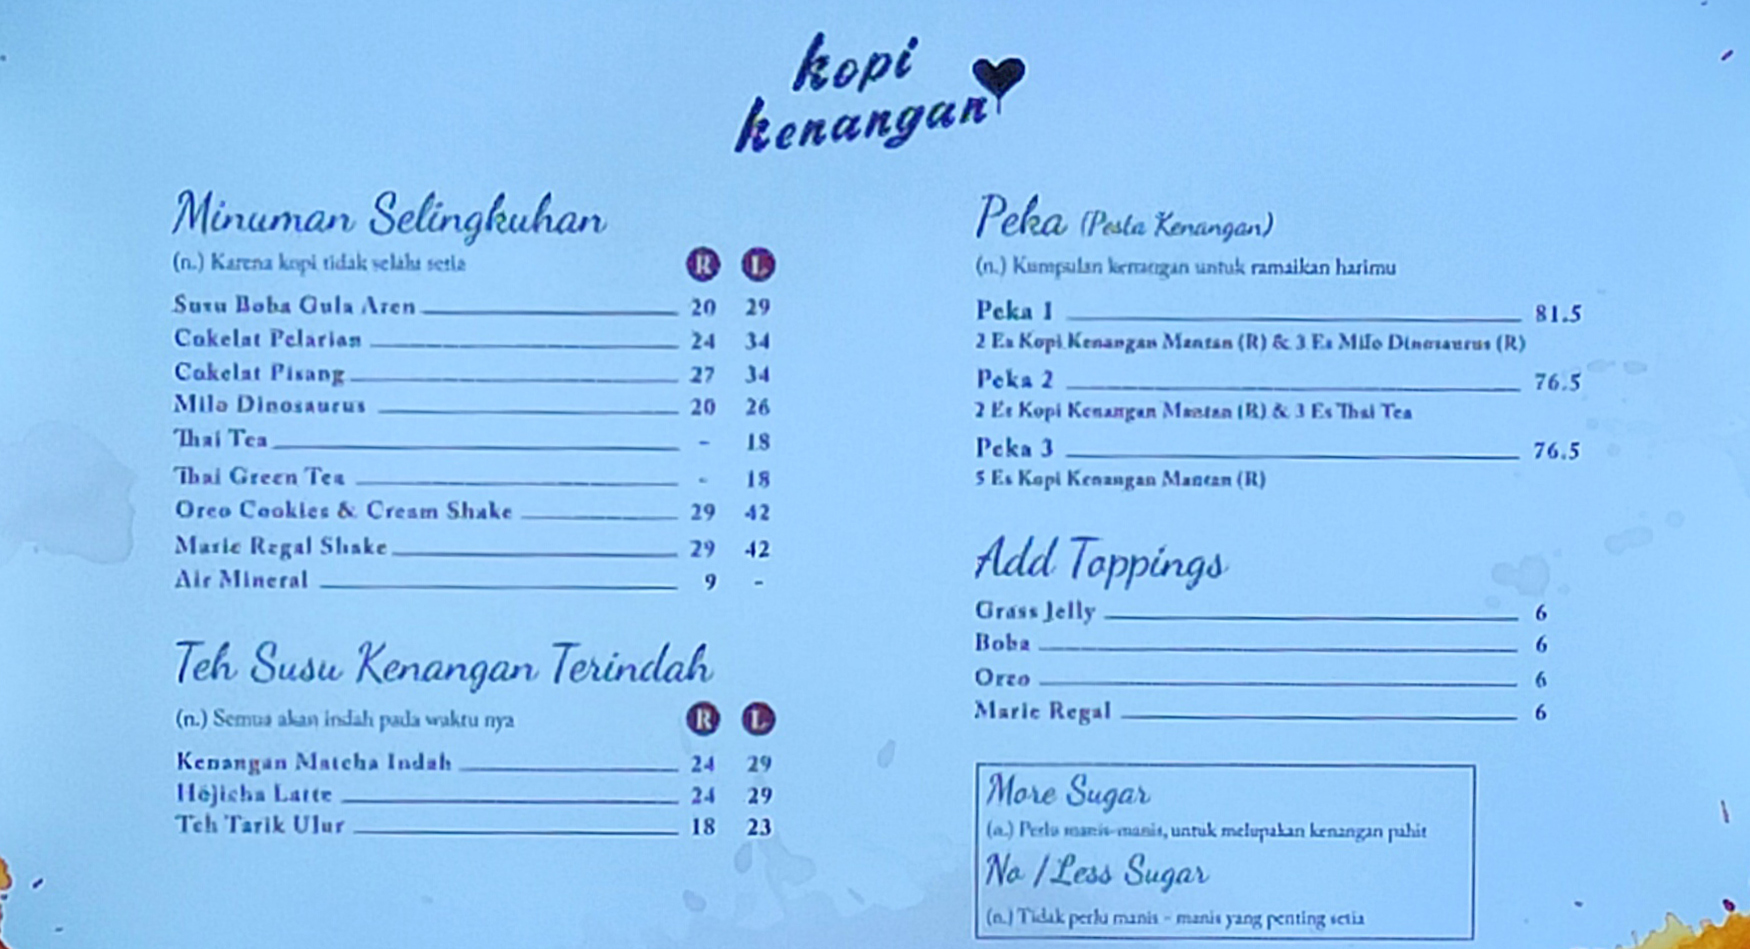 kopi
kenangan
Minuman Selingkuhan
(n.) Karena kopi tidak selalu setia R L
Susu Boba Gula Aren 20 29
Cokelat Pelarian 24 34
Cokelat Pisang 27 34
Milo Dinosaurus 20 26
Thai Tea - 18
Thai Green Tea - 18
Oreo Cookies & Cream Shake 29 42
Marie Regal Shake 29 42
Air Mineral 9 -
Teh Susu Kenangan Terindah
(n.) Semua akan indah pada waktu nya R L
Kenangan Matcha Indah 24 29
Hojicha Latte 24 29
Teh Tarik Ulur 18 23
Peka (Pesta Kenangan)
(n.) Kumpulan kenangan untuk ramaikan harimu
Peka 1 81.5
2 Es Kopi Kenangan Mantan (R) & 3 Es Milo Dinosaurus (R)
Peka 2 76.5
2 Es Kopi Kenangan Mantan (R) & 3 Es Thai Tea
Peka 3 76.5
5 Es Kopi Kenangan Mantan (R)
Add Toppings
Grass Jelly 6
Boba 6
Oreo 6
Marie Regal 6
More Sugar
(a.) Perlu manis-manis, untuk melupakan kenangan pahit
No / Less Sugar
(n.) Tidak perlu manis - manis yang penting setia